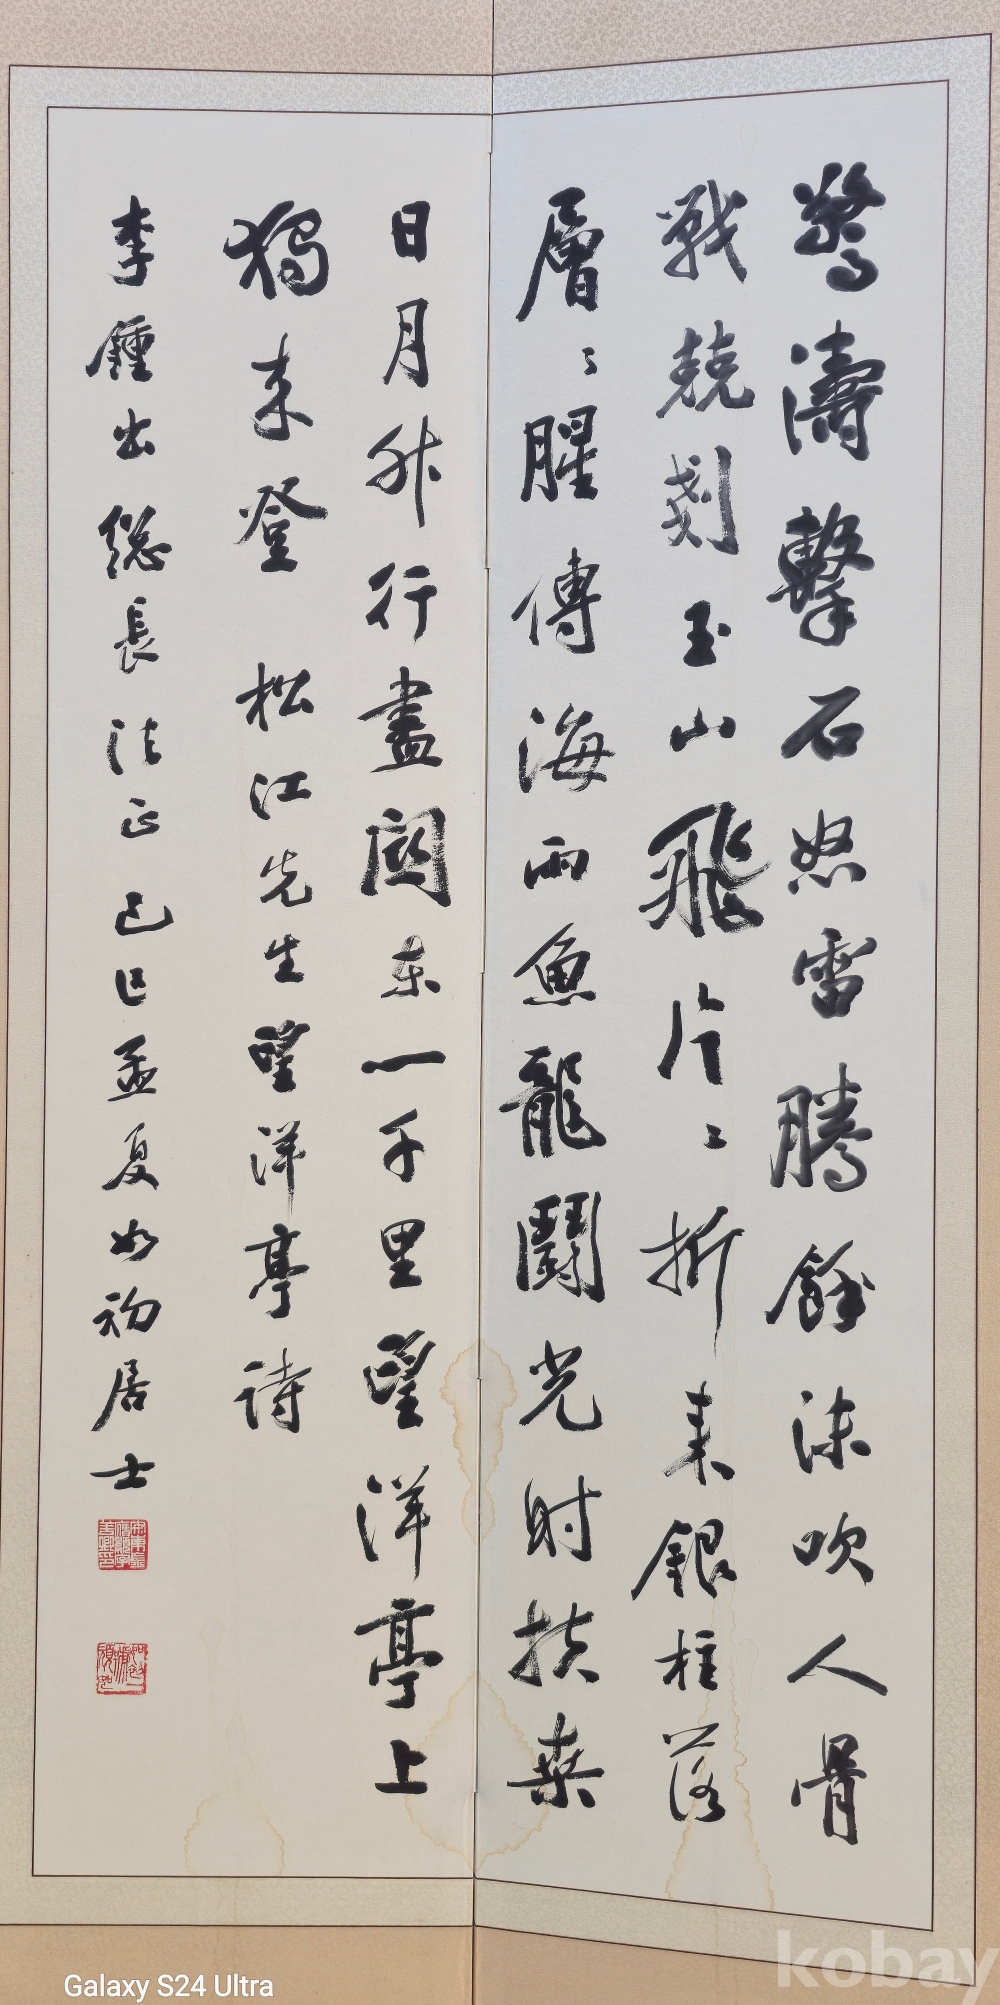 驚濤擊石怒雷騰餘沫吹人骨
戰兢刻玉山飛片〻折來銀柱落
層〻腥傳海雨魚龍鬪光射扶桑
日月升行盡關東一千里望洋亭上
獨來登 松江先生望洋亭詩
李鍾出總長法正 己巳孟夏如初居士
Galaxy S24 Ultra
kobay